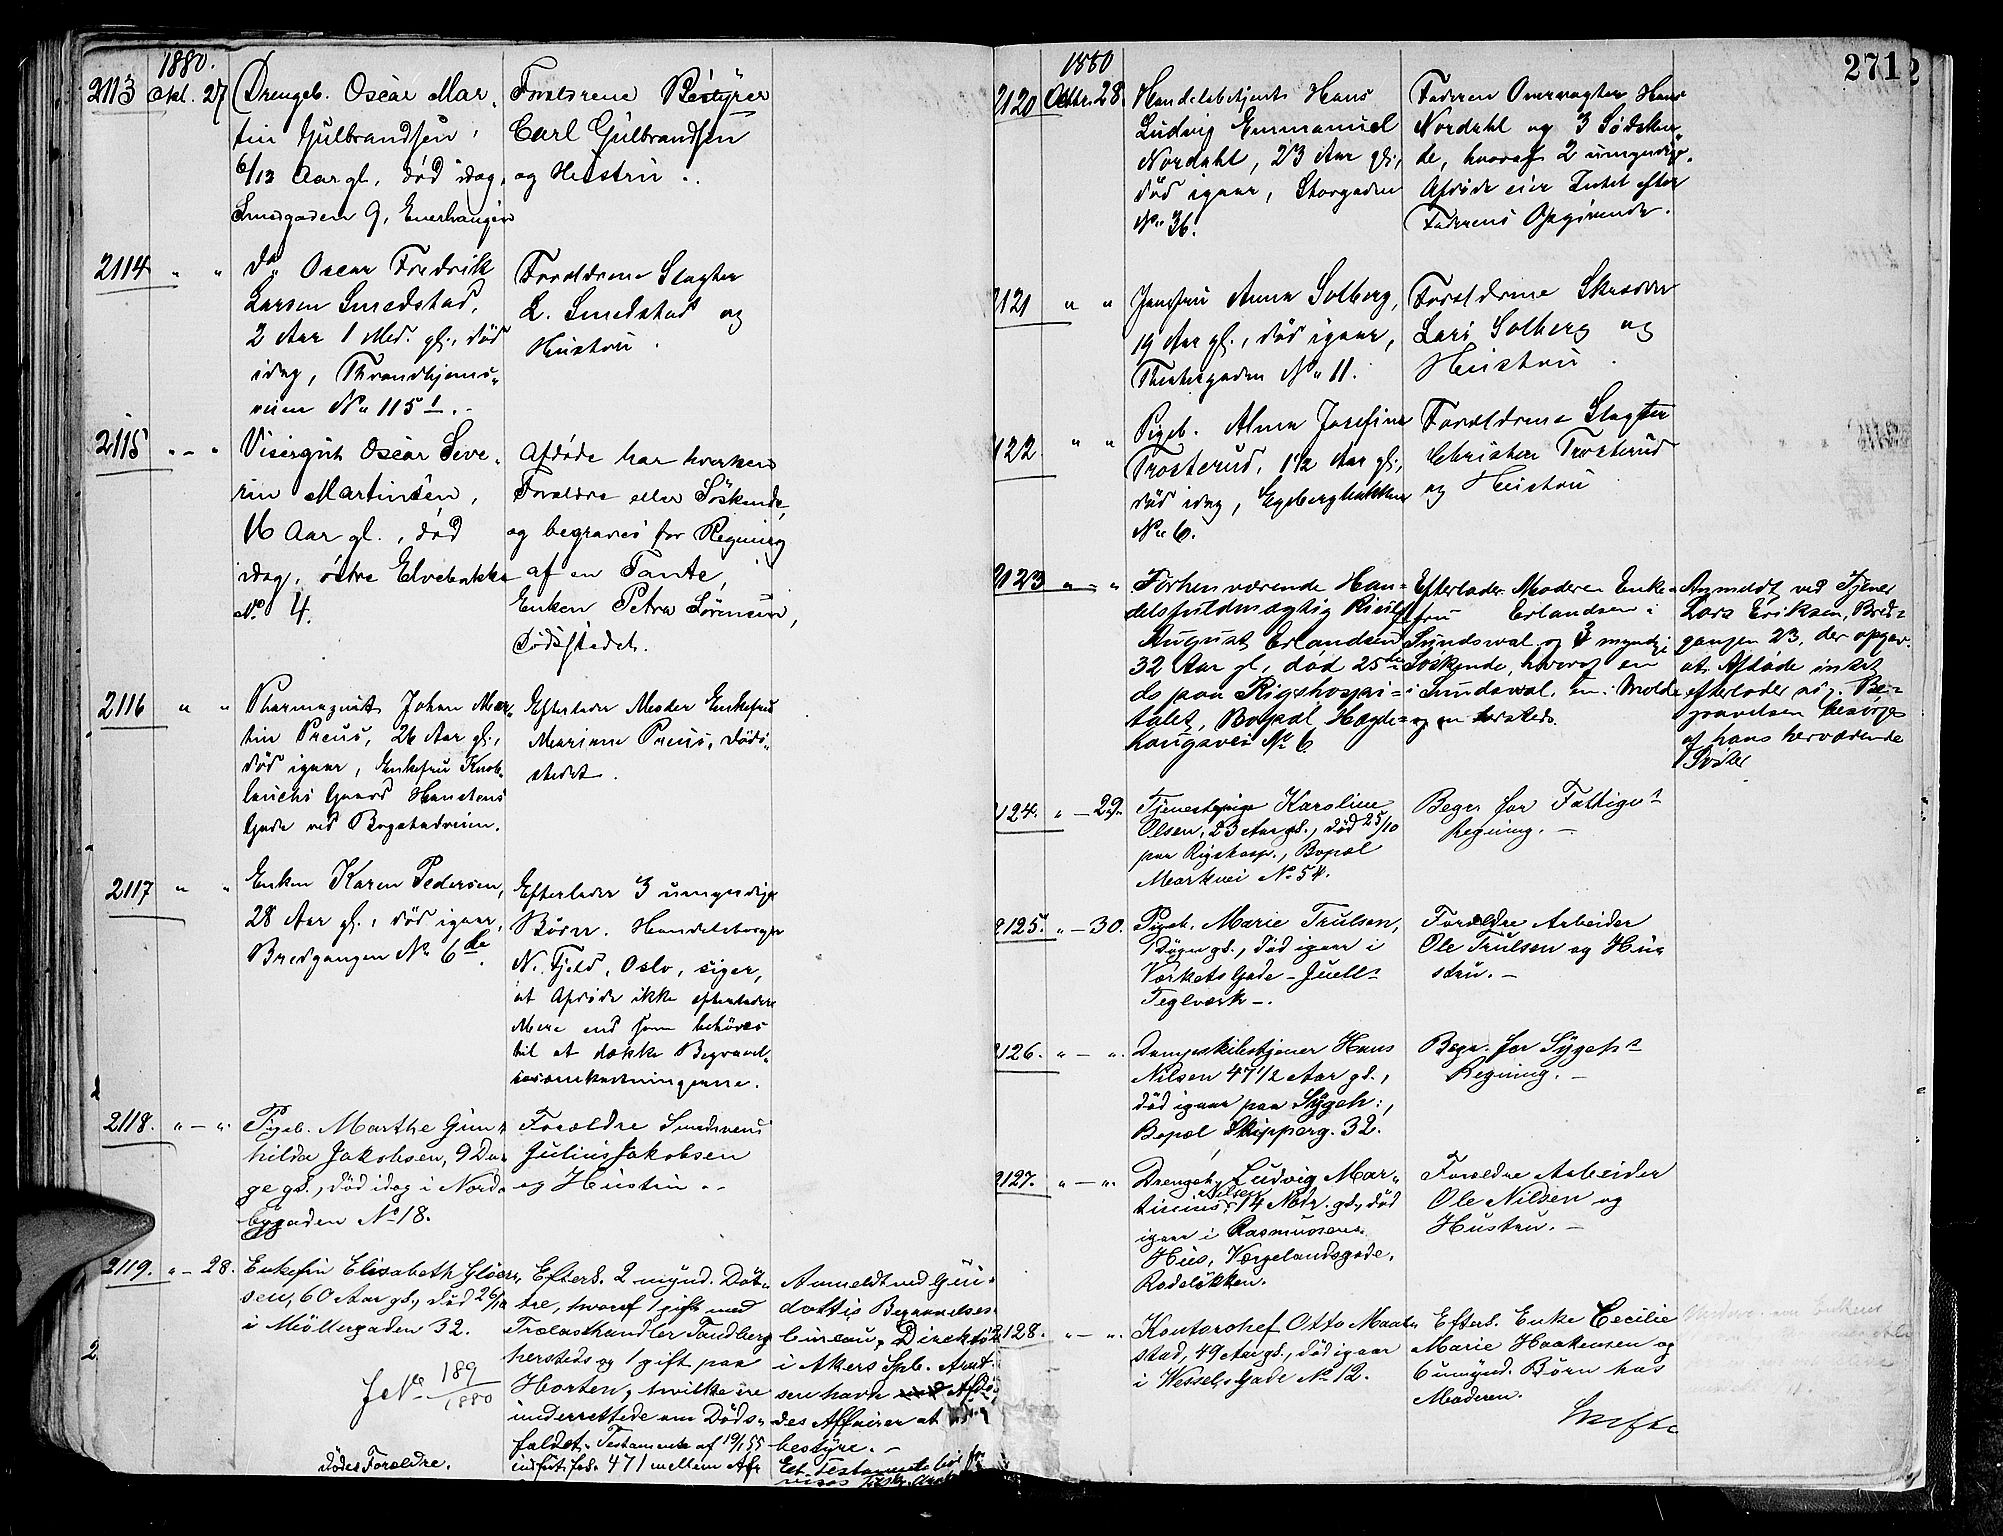 1880.
2113 Okt. 27 Drengeb. Oscar Mar-
tin Gulbrandsen,
6/12 Aar gl. død idag,
Smedgaden 9, Enerhaugen
Forældrene Bestyrer
Carl Gulbrandsen
og Hustru.
2114 " " Do Oscar Fredrik
Larsen Smedstad,
2 Aar 1 Md. gl., død
idag, Throndhjems-
veien No 115 1.
Forældrene Slagter
L. Smedstad og
Hustru.
2115 " - " Visergut Oscar Seve-
rin Martinsen,
16 Aar gl., død
idag, østre Elvebakke
No 4.
Afdøde har hverken
Forældre eller Søskende,
og begraves for Regning
af en Tante,
Enken Petra Sørensen,
Dødsstedet.
2116 " " Pharmaceut Johan Mar-
tin Preus, 26 Aar gl.,
død igaar, Enkefru Knob-
lauchs Gaard Hansteens
Gade ved Bogstadveien.
Efterlader Moder Enkefru
Mariane Preus, Døds-
stedet.
2117 " " Enken Karen Pedersen,
28 Aar gl., død igaar,
Bredgangen No 6 de.
Efterlader 3 umyndige
Børn. Handelsborger
N. Fjeld, Oslo, siger,
at Afdøde ikke efterlader
Mere end som behøves
til at dække Begravel-
sesomkostningerne.
2118. " - " Pigeb. Marthe Gun-
hilda Jakobsen, 9 Da-
ge gl., død idag i Nord-
bygaden No 18.
Forældre Smedsvend
Julius Jakobsen
og Hustru.
2119. " - 28. Enkefru Elisabeth Gløer-
sen, 60 Aar gl., død 26/10
i Møllergaden 32.
J No 189/1880
Efterl. 2 mynd. Døt-
tre, hvoraf 1 gift med
Trælasthandler Tandberg
hersteds og 1 gift paa
Horten, hvilke ere
underrettede om Døds-
faldet. Testamente af 19/1 55
indført fol. 471 mellem Afd
dødes Forældre.
Anmeldt ved Gun-
dottis Begravelses-
bureau. Direktør
i Akers Spb. Arnt-
sen havde Afdø-
des Affairer at
bestyre.
Et Testamente
1880
271
2120 Oktbr. 28. Handelsbetjent Hans
Ludvig Emmanuel
Nordahl, 23 Aar gl.,
død igaar, Storgaden
No 36.
Faderen Overvagter Hans
Nordahl og 3 Sødsken-
de, hvoraf 2 umyndige.
Afdøde eier Intet efter
Faderens Opgivende.
2121 " " Jomfru Anna Solberg,
19 Aar gl., død igaar,
Theatergaden No 11.
Forældrene Skrædder
Lars Solberg og
Hustru.
2122 " " Pigeb. Alma Josefine
Trosterud, 1 1/2 Aar gl.,
død idag, Egebergbakken
No 6.
Forældrene Slagter
Christen Trosterud
og Hustru
2123 " - " Forhenværende Han-
delsfuldmægtig Rudolf
August Erlandsen
32 Aar gl., død 25de
ds paa Rigshospi-
talet, Bopæl Hægde-
haugsvei No 6.
Efterlader Moderen Enke-
fru Erlandsen i
Sundsval og 3 myndige
Søskende, hvoraf en
i Sundsval, en i Molde
og en hersteds.
Anmeldt ved Tjener
Lars Eriksen, Bred-
gangen 23, der opgav
at Afdøde intet
efterlader sig. Be-
gravelsen besørges
af hans herværende
Broder
2124. " - 29. Tjenestepige Karoline
Olsen, 23 Aar gl., død 25/10
paa Rigshosp., Bopæl
Markvei No 54.
Begr. for Fattigv.
Regning.
2125. " - 30. Pigeb. Marie Trulsen,
1 Døgn gl., død igaar i
Værkets Gade - Juells
Teglværk.
Forældre Arbeider
Ole Trulsen og Hu-
stru.
2126. " - " Dampskibstjener Hans
Nilsen 47 1/2 Aar gl.,
død igaar paa Sygeh.,
Bopæl Skipperg. 32.
Begr. for Sygeh.
Regning.
2127. " - " Drengeb. Ludvig Mar-
tinius Nilsen 14 Mdr. gl., død
igaar i Rasmussens
Hus, Vergelandsgade,
Rodeløkken.
Forældre Arbeider
Ole Nilsen og
Hustru.
2128. " - " Kontorchef Otto Maal-
stad, 49 Aar gl., død igaar
i Wessels Gade No 12.
Efterl. Enke Cecilie
Marie Haakensen og
6 umynd. Børn hos
Moderen.